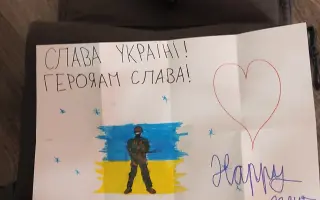 СЛАВА УКРАЇНІ!
ГЕРОЯАМ СЛАВА!
Happy